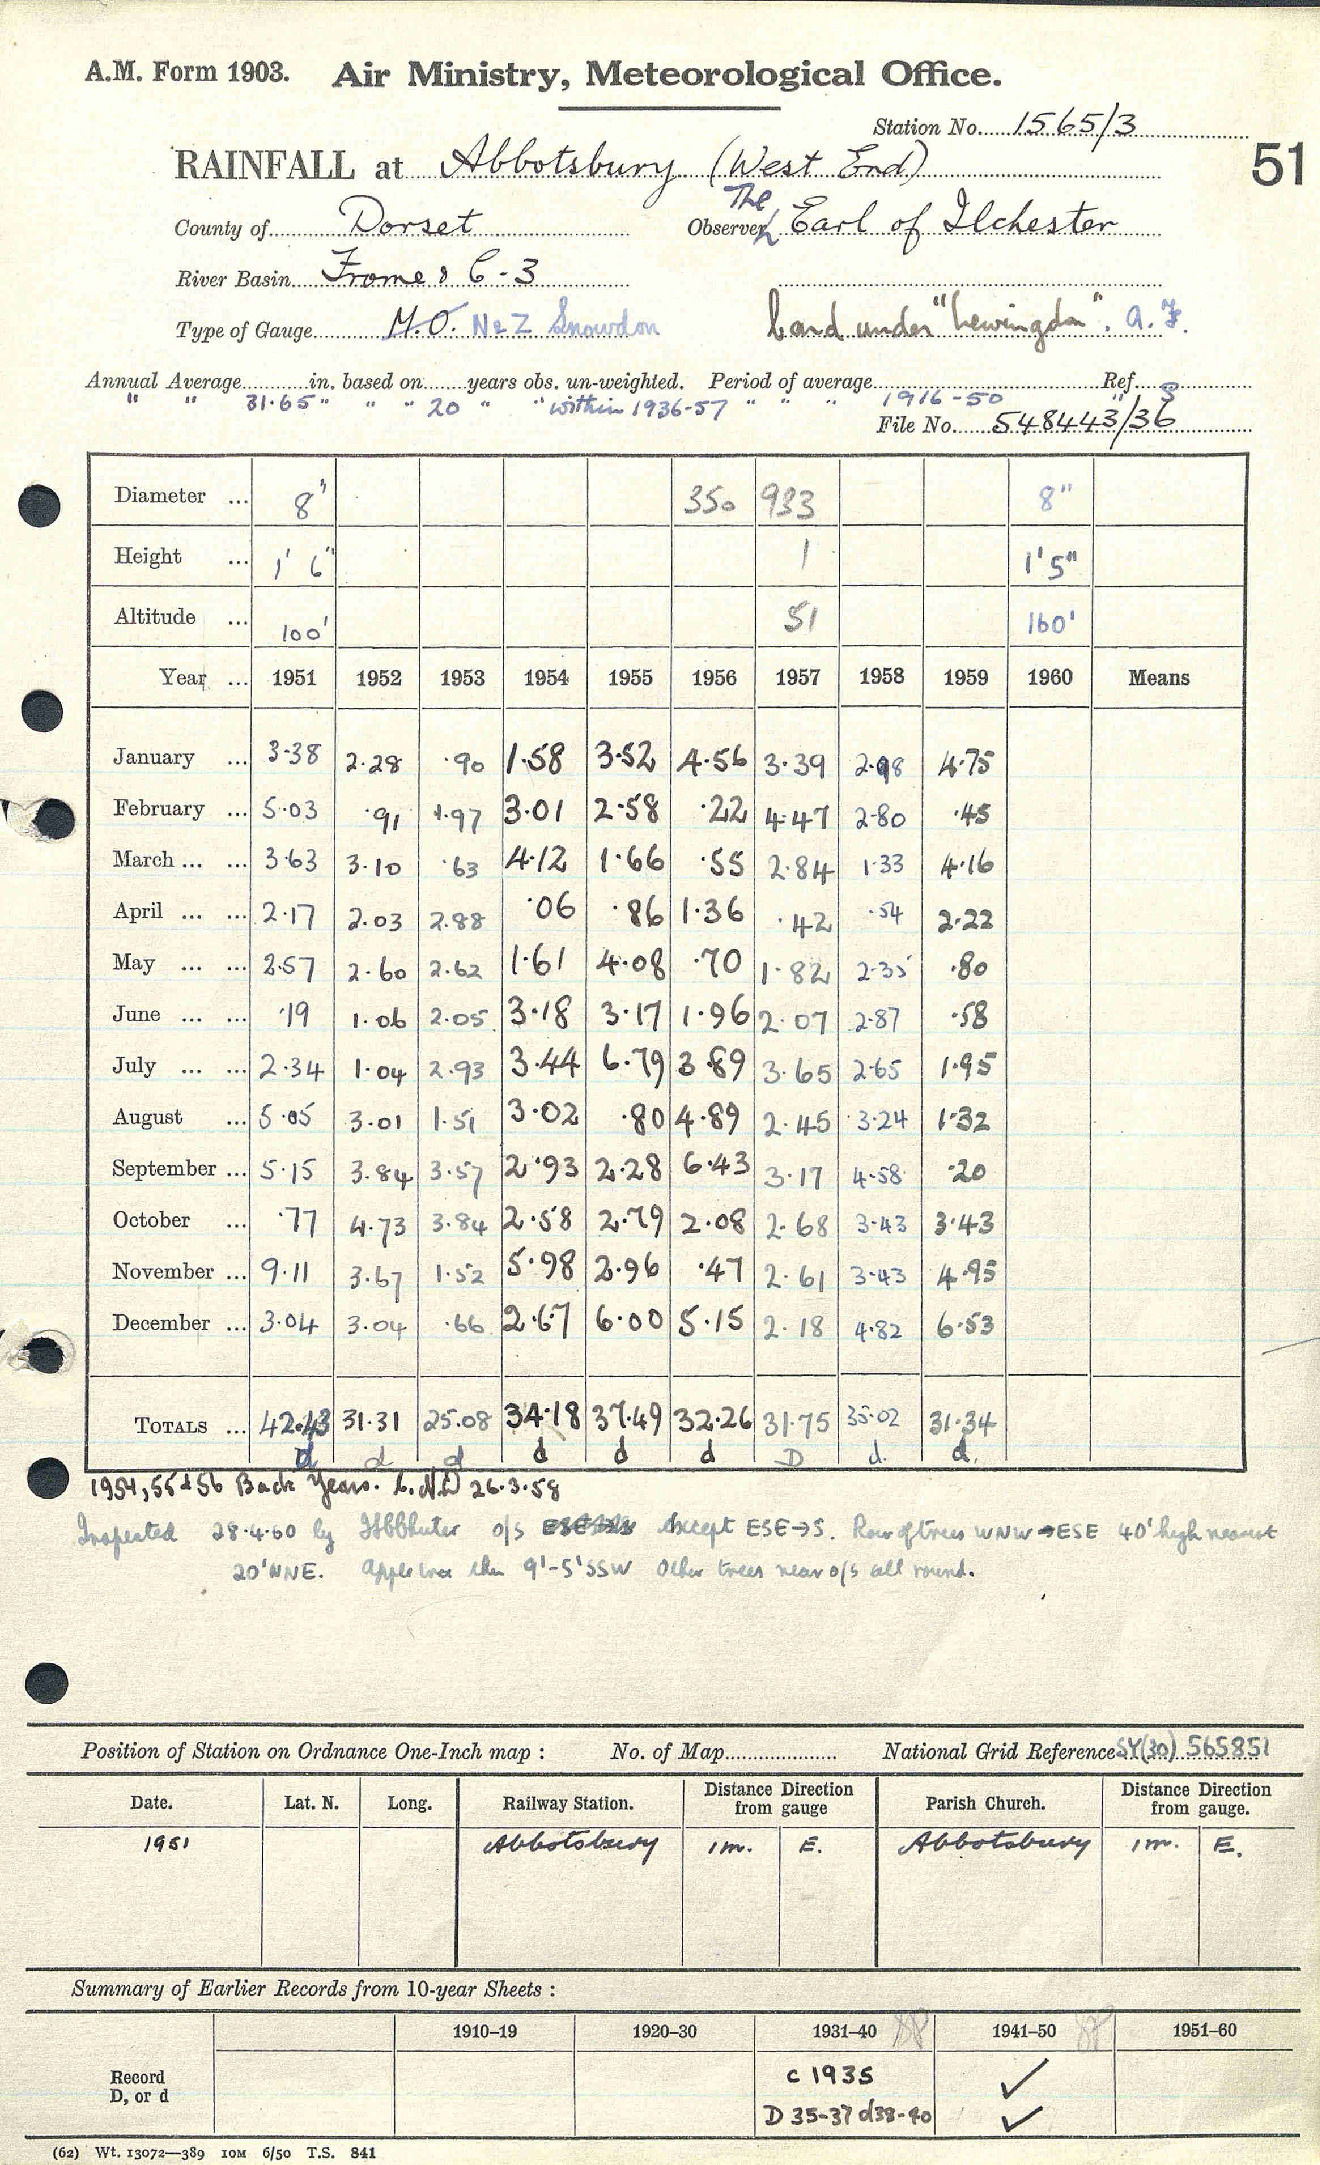 A.M. Form 1903. Air Ministry, Meteorological Office.
Station No. 1565/3
51
RAINFALL at Abbotsbury (West End)
County of Dorset Observer The Earl of Ilchester
River Basin Frome & C-3
Type of Gauge M.O. No 2 Snowdon Card under "Lewingdon". A.F.
Annual Average in. based on years obs. un-weighted. Period of average Ref. S
" " 31.65 " " " 20 " " within 1936-57 " " " 1916-50 "
File No. 548443/36
Diameter ... 8" 350 933 8"
Height ... 1' 6" 1 1'5"
Altitude ... 100' 51 160'
Year ... 1951 1952 1953 1954 1955 1956 1957 1958 1959 1960 Means
January ... 3.38 2.28 .90 1.58 3.52 4.56 3.39 2.98 4.75
February ... 5.03 .91 1.97 3.01 2.58 .22 4.47 2.80 .45
March ... ... 3.63 3.10 .63 4.12 1.66 .55 2.84 1.33 4.16
April ... ... 2.17 2.03 2.88 .06 .86 1.36 .42 .54 2.22
May ... ... 2.57 2.60 2.62 1.61 4.08 .70 1.82 2.35 .80
June ... ... .19 1.06 2.05 3.18 3.17 1.96 2.07 2.87 .58
July ... ... 2.34 1.04 2.93 3.44 6.79 3.89 3.65 2.65 1.95
August ... 5.05 3.01 1.51 3.02 .80 4.89 2.45 3.24 1.32
September ... 5.15 3.84 3.57 2.93 2.28 6.43 3.17 4.58 .20
October ... .77 4.73 3.84 2.58 2.79 2.08 2.68 3.43 3.43
November ... 9.11 3.67 1.52 5.98 2.96 .47 2.61 3.43 4.95
December ... 3.04 3.04 .66 2.67 6.00 5.15 2.18 4.82 6.53
TOTALS ... 42.43 31.31 25.08 34.18 37.49 32.26 31.75 35.02 31.34
d d d d d d D d. d.
1954, 55 & 56 Back Years. 26.3.58
Inspected 28.4.60 by o/s except ESE→S. Row of trees WNW→ESE 40' high nearest
20' NNE. Apple tree 9'-5' SSW Other trees near o/s all round.
Position of Station on Ordnance One-Inch map : No. of Map National Grid Reference SY(30) 565851
Date. Lat. N. Long. Railway Station. Distance from gauge Direction Parish Church. Distance from gauge. Direction
1951 Abbotsbury 1m. E. Abbotsbury 1m. E.
Summary of Earlier Records from 10-year Sheets :
1910–19 1920–30 1931–40 1941–50 1951–60
Record D, or d
c 1935 ✓
D 35-37 d38-40 ✓
(62) Wt. 13072—389 10M 6/50 T.S. 841